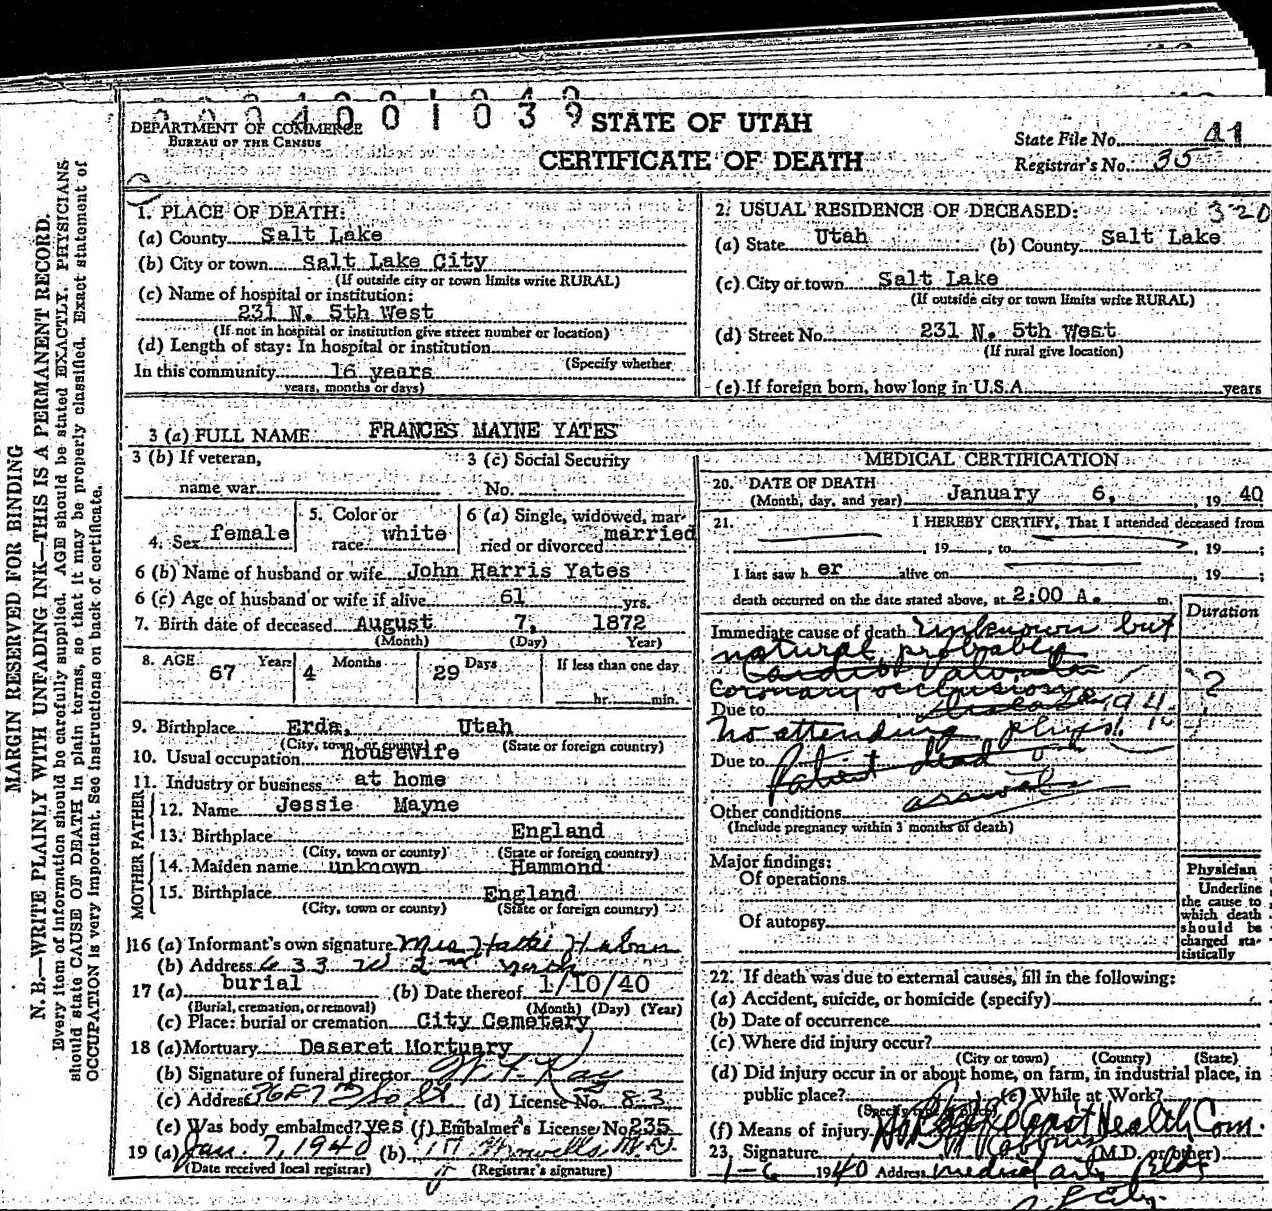 0 0 0 4 0 0 1 0 3 9
DEPARTMENT OF COMMERCE
BUREAU OF THE CENSUS
STATE OF UTAH
CERTIFICATE OF DEATH
State File No. 41
Registrar's No. 35
MARGIN RESERVED FOR BINDING
N. B.—WRITE PLAINLY WITH UNFADING INK—THIS IS A PERMANENT RECORD.
Every item of information should be carefully supplied. AGE should be stated EXACTLY. PHYSICIANS
should state CAUSE OF DEATH in plain terms, so that it may be properly classified. Exact statement of
OCCUPATION is very important. See instructions on back of certificate.
1. PLACE OF DEATH:
(a) County Salt Lake
(b) City or town Salt Lake City
(If outside city or town limits write RURAL)
(c) Name of hospital or institution:
231 N. 5th West
(If not in hospital or institution give street number or location)
(d) Length of stay: In hospital or institution
(Specify whether
In this community 16 years
years, months or days)
2. USUAL RESIDENCE OF DECEASED: 320
(a) State Utah (b) County Salt Lake
(c) City or town Salt Lake
(If outside city or town limits write RURAL)
(d) Street No. 231 N. 5th West
(If rural give location)
(e) If foreign born, how long in U.S.A. years
3 (a) FULL NAME FRANCES MAYNE YATES
3 (b) If veteran,
name war
3 (c) Social Security
No.
4. Sex female
5. Color or
race white
6 (a) Single, widowed, mar-
ried or divorced married
6 (b) Name of husband or wife John Harris Yates
6 (c) Age of husband or wife if alive 61 yrs.
7. Birth date of deceased August 7, 1872
(Month) (Day) (Year)
8. AGE: 67 Years 4 Months 29 Days If less than one day
hr. min.
9. Birthplace Erda, Utah
(City, town or county) (State or foreign country)
10. Usual occupation housewife
11. Industry or business at home
FATHER
12. Name Jessie Mayne
13. Birthplace England
(City, town or county) (State or foreign country)
MOTHER
14. Maiden name unknown Hammond
15. Birthplace England
(City, town or county) (State or foreign country)
16 (a) Informant's own signature Mrs Hattie
(b) Address 633 W 2nd north
17 (a) burial (b) Date thereof 1/10/40
(Burial, cremation, or removal) (Month) (Day) (Year)
(c) Place: burial or cremation City Cemetery
18 (a) Mortuary Deseret Mortuary
(b) Signature of funeral director
(c) Address 36 E 7th So (d) License No. 83
(e) Was body embalmed? yes (f) Embalmer's License No. 235
19 (a) Jan. 7, 1940 (b) M.D.
(Date received local registrar) (Registrar's signature)
MEDICAL CERTIFICATION
20. DATE OF DEATH
(Month, day, and year) January 6, 19 40
21. I HEREBY CERTIFY, That I attended deceased from
, 19 , to , 19 ;
I last saw h er alive on , 19 ;
death occurred on the date stated above, at 2:00 A. m.
Duration
Immediate cause of death unknown but
natural, probably
coronary occlusion
Due to
?
No attending phys.
Due to Patient dead on
arrival
Other conditions
(Include pregnancy within 3 months of death)
Major findings:
Of operations
Of autopsy
Physician
Underline
the cause to
which death
should be
charged sta-
tistically
22. If death was due to external causes, fill in the following:
(a) Accident, suicide, or homicide (specify)
(b) Date of occurrence
(c) Where did injury occur?
(City or town) (County) (State)
(d) Did injury occur in or about home, on farm, in industrial place, in
public place? (e) While at Work?
(f) Means of injury Health Com.
23. Signature (M.D. or other)
1-6 1940 Address medical arts Bldg